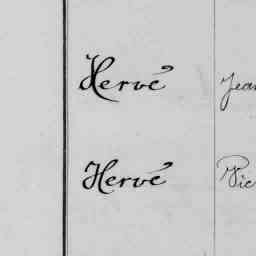 Hervé Jean
Hervé Vic